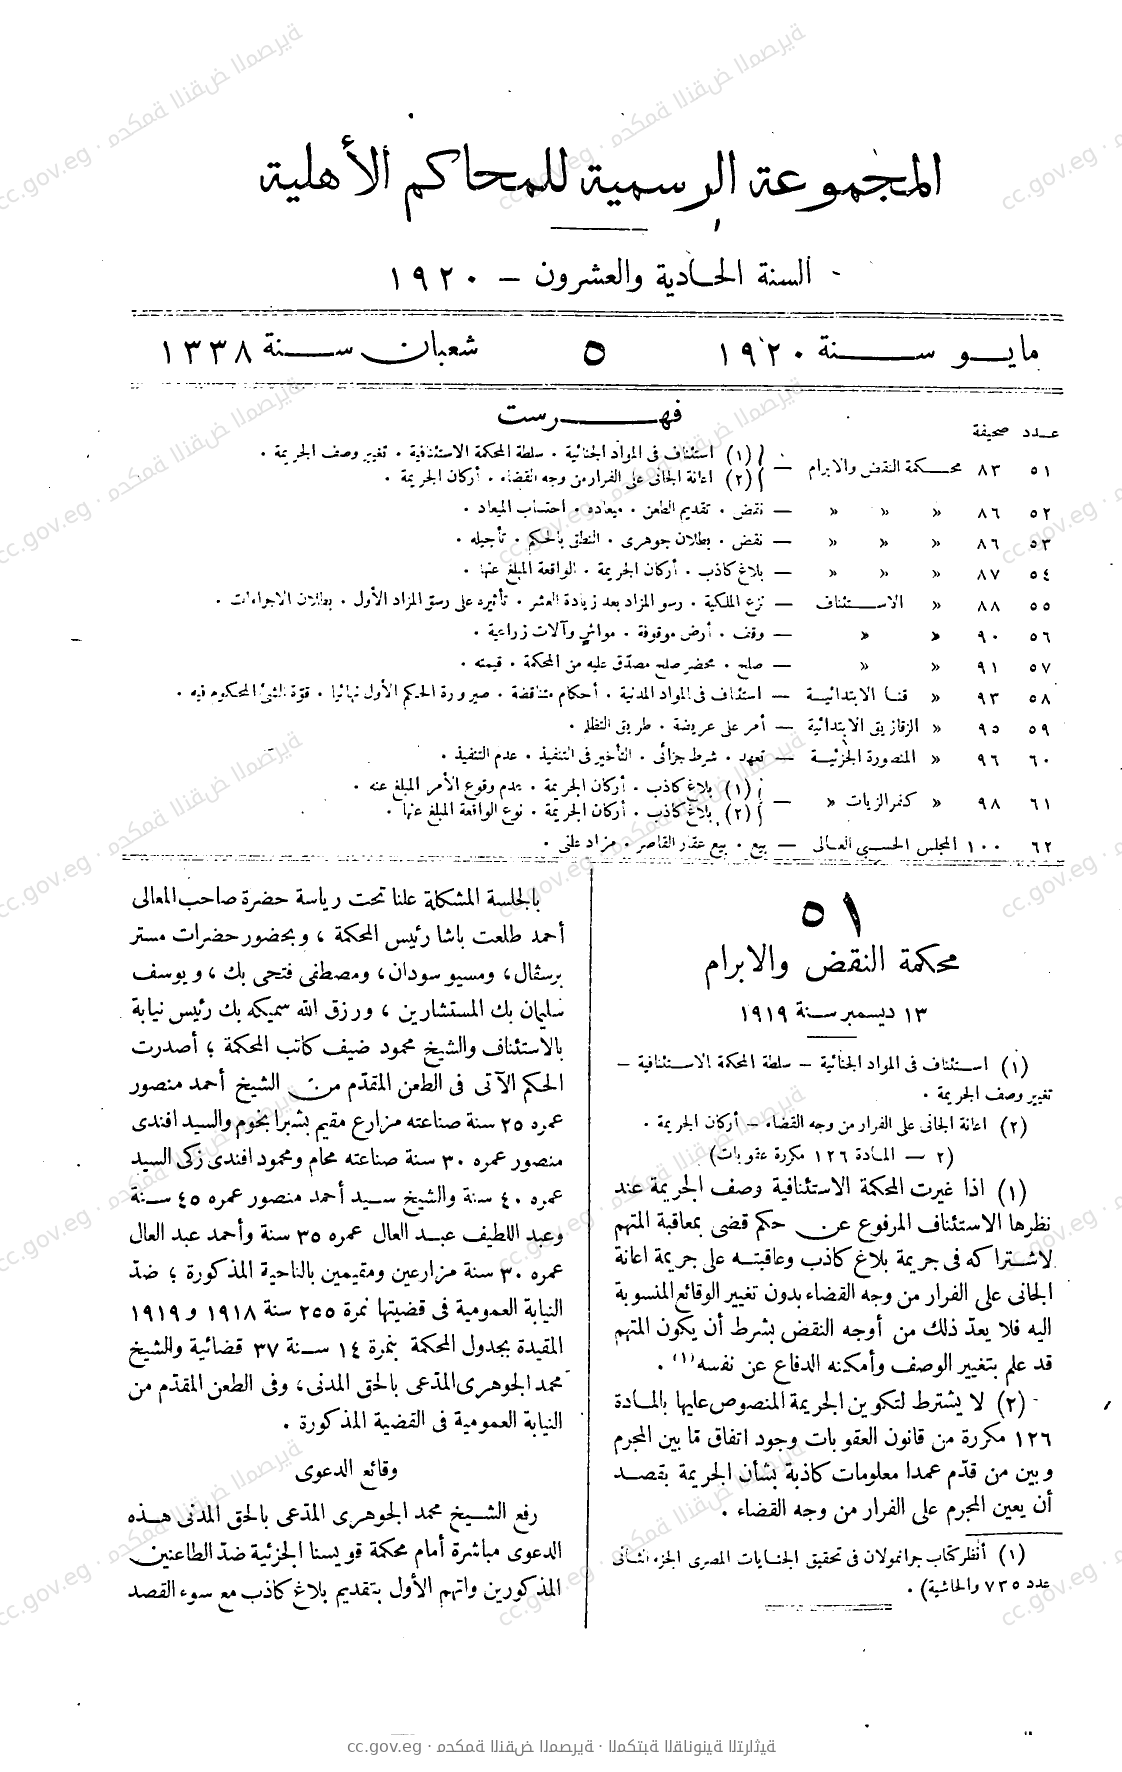 المجموعة الرسمية للمحاكم الأهلية
السنة الحادية والعشرون – ١٩٢٠
مايو سنة ١٩٢٠ ٥ شعبان سنة ١٣٣٨
فهرست
عدد صحيفة
٥١ ٨٣ محكمة النقض والابرام — (١) استئناف فى المواد الجنائية . سلطة المحكمة الاستئنافية . تغيير وصف الجريمة .
(٢) اعانة الجانى على الفرار من وجه القضاء . أركان الجريمة .
٥٢ ٨٦ » » » — نقض . تقديم الطعن . ميعاده . احتساب الميعاد .
٥٣ ٨٦ » » » — نقض . بطلان جوهرى . النطق بالحكم . تأجيله .
٥٤ ٨٧ » » » — بلاغ كاذب . أركان الجريمة . الواقعة المبلغ عنها .
٥٥ ٨٨ » الاستئناف — نزع الملكية . رسو المزاد بعد زيادة العشر . تأثيره على رسو المزاد الأول . بطلان الاجراءات .
٥٦ ٩٠ » » — وقف . أرض موقوفة . مواشى وآلات زراعية .
٥٧ ٩١ » » — صلح . محضر صلح مصدّق عليه من المحكمة . قيمته .
٥٨ ٩٣ » قنا الابتدائية — استئناف فى المواد المدنية . أحكام متناقضة . صيرورة الحكم الأول نهائيا . قوّة الشئ المحكوم فيه .
٥٩ ٩٥ » الزقازيق الابتدائية — أمر على عريضة . طريق التظلم .
٦٠ ٩٦ » المنصورة الجزئية — تعهد . شرط جزائى . التأخير فى التنفيذ . عدم التنفيذ .
٦١ ٩٨ » كفر الزيات » — (١) بلاغ كاذب . أركان الجريمة . عدم وقوع الأمر المبلغ عنه .
(٢) بلاغ كاذب . أركان الجريمة . نوع الواقعة المبلغ عنها .
٦٢ ١٠٠ المجلس الحسبى العالى — بيع . بيع عقار القاصر . مزاد علنى .
٥١
محكمة النقض والابرام
١٣ ديسمبر سنة ١٩١٩
(١) استئناف فى المواد الجنائية – سلطة المحكمة الاستئنافية –
تغيير وصف الجريمة .
(٢) اعانة الجانى على الفرار من وجه القضاء – أركان الجريمة .
(٢ — المادة ١٢٦ مكررة عقوبات)
(١) اذا غيرت المحكمة الاستئنافية وصف الجريمة عند
نظرها الاستئناف المرفوع عن حكم قضى بمعاقبة المتهم
لاشتراكه فى جريمة بلاغ كاذب وعاقبته على جريمة اعانة
الجانى على الفرار من وجه القضاء بدون تغيير الوقائع المنسوبة
اليه فلا يعدّ ذلك من أوجه النقض بشرط أن يكون المتهم
قد علم بتغيير الوصف وأمكنه الدفاع عن نفسه (١) .
(٢) لا يشترط لتكوين الجريمة المنصوص عليها بالمادة
١٢٦ مكررة من قانون العقوبات وجود اتفاق ما بين المجرم
وبين من قدّم عمدا معلومات كاذبة بشأن الجريمة بقصد
أن يعين المجرم على الفرار من وجه القضاء .
(١) أنظر كتاب جرانمولان فى تحقيق الجنايات المصرى الجزء الثانى
عدد ٧٣٥ والحاشية) .
بالجلسة المشكلة علنا تحت رياسة حضرة صاحب المعالى
أحمد طلعت باشا رئيس المحكمة ، وبحضور حضرات مستر
برسڤال ، ومسيو سودان ، ومصطفى فتحى بك ، ويوسف
سليمان بك المستشارين ، ورزق الله سميكه بك رئيس نيابة
بالاستئناف والشيخ محمود ضيف كاتب المحكمة ؛ أصدرت
الحكم الآتى فى الطعن المقدّم من الشيخ أحمد منصور
عمره ٢٥ سنة صناعته مزارع مقيم بشبرا بخوم والسيد افندى
منصور عمره ٣٠ سنة صناعته محام ومحمود افندى زكى السيد
عمره ٤٠ سنة والشيخ سيد أحمد منصور عمره ٤٥ سنة
وعبد اللطيف عبد العال عمره ٣٥ سنة وأحمد عبد العال
عمره ٣٠ سنة مزارعين ومقيمين بالناحية المذكورة ؛ ضدّ
النيابة العمومية فى قضيتها نمرة ٢٥٥ سنة ١٩١٨ و ١٩١٩
المقيدة بجدول المحكمة بنمرة ١٤ سنة ٣٧ قضائية والشيخ
محمد الجوهرى المدّعى بالحق المدنى، وفى الطعن المقدّم من
النيابة العمومية فى القضية المذكورة .
وقائع الدعوى
رفع الشيخ محمد الجوهرى المدّعى بالحق المدنى هذه
الدعوى مباشرة أمام محكمة قويسنا الجزئية ضدّ الطاعنين
المذكورين واتهم الأول بتقديم بلاغ كاذب مع سوء القصد
cc.gov.eg · محكمة النقض المصرية · المكتبة القانونية التراثية